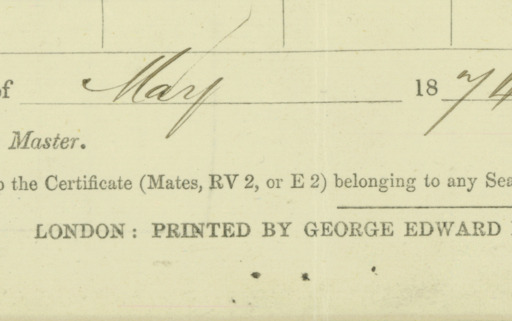 of May 1874
Master.
o the Certificate (Mates, RV 2, or E 2) belonging to any Sea
LONDON: PRINTED BY GEORGE EDWARD